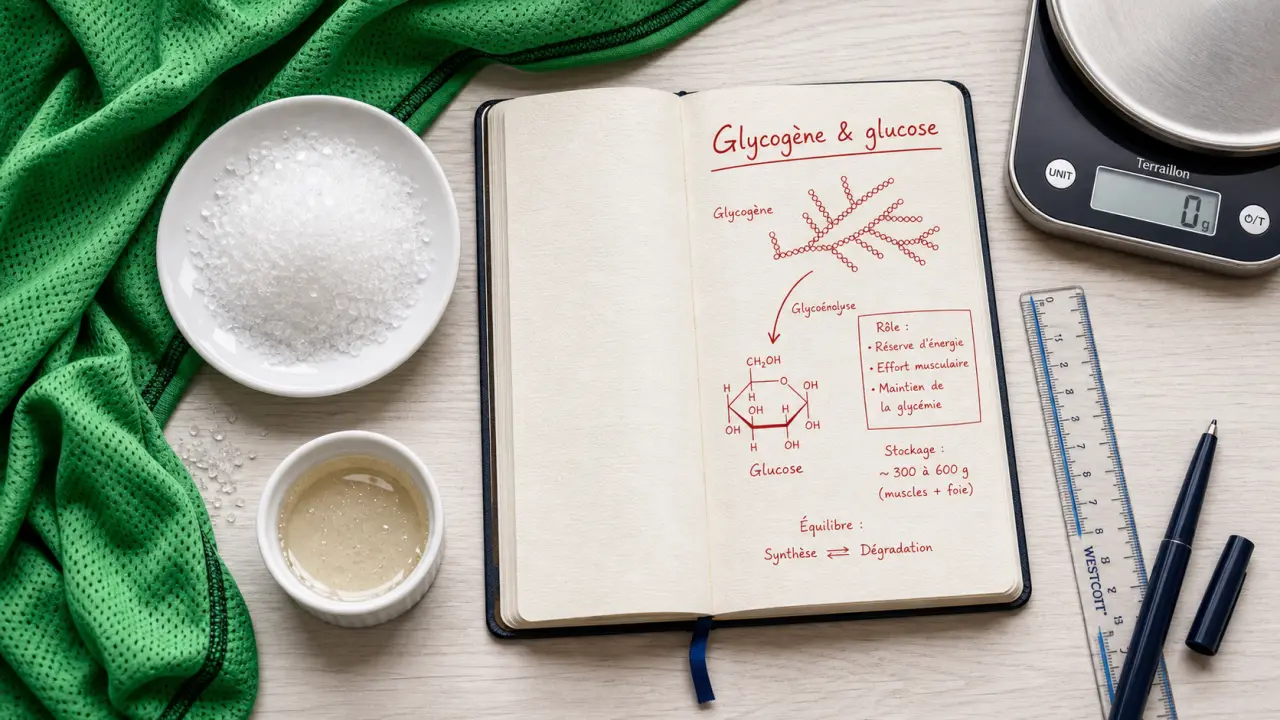 Glycogène & glucose
Glycogène
Glycoénolyse
Rôle :
• Réserve d'énergie
• Effort musculaire
• Maintien de
la glycémie
CH₂OH
O
H
H
OH
H
OH
H
OH
H
OH
H
OH
Glucose
Stockage :
~ 300 à 600 g
(muscles + foie)
Équilibre :
Synthèse ⇌ Dégradation
Terraillon
UNIT
0g
⏻/T
WESTCOTT